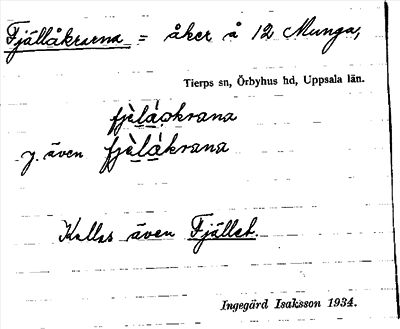 Fjällåkrarna = åker å 12 Munga,
Tierps sn, Örbyhus hd, Uppsala län.
fjèlàokrana
y. även fjèlàkrana
Kallas även Fjället.
Ingegärd Isaksson 1934.